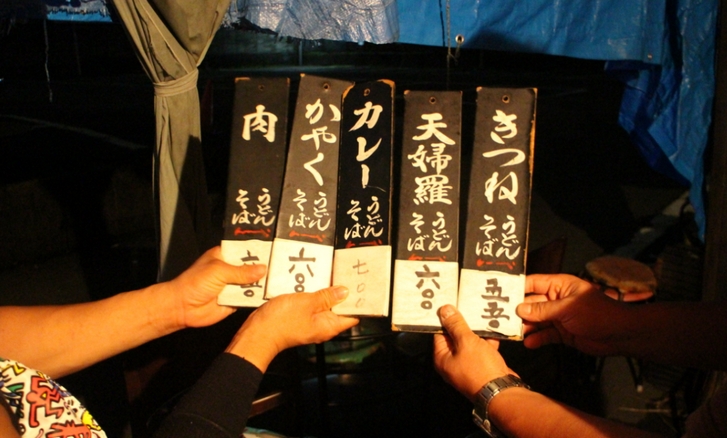 きつね
うどん
そば
五五〇
天婦羅
うどん
そば
六〇〇
カレー
うどん
そば
七〇〇
かやく
うどん
そば
六〇〇
肉
うどん
そば